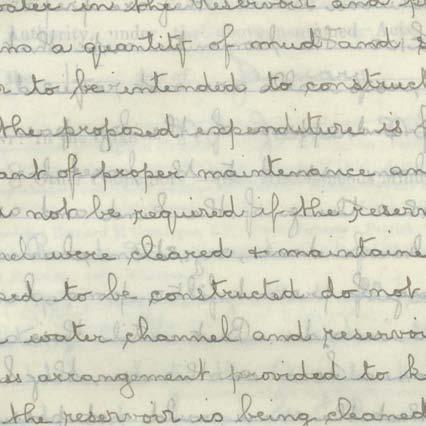 water in the reservoir and p
m a quantity of mud and s
r to be intended to construct
the proposed expenditure is f
ant of proper maintenance an
not be required if the reserv
nel were cleared & maintaine
sed to be constructed do not
water channel and reservoi
ss arrangement provided to k
the reservoir is being cleaned